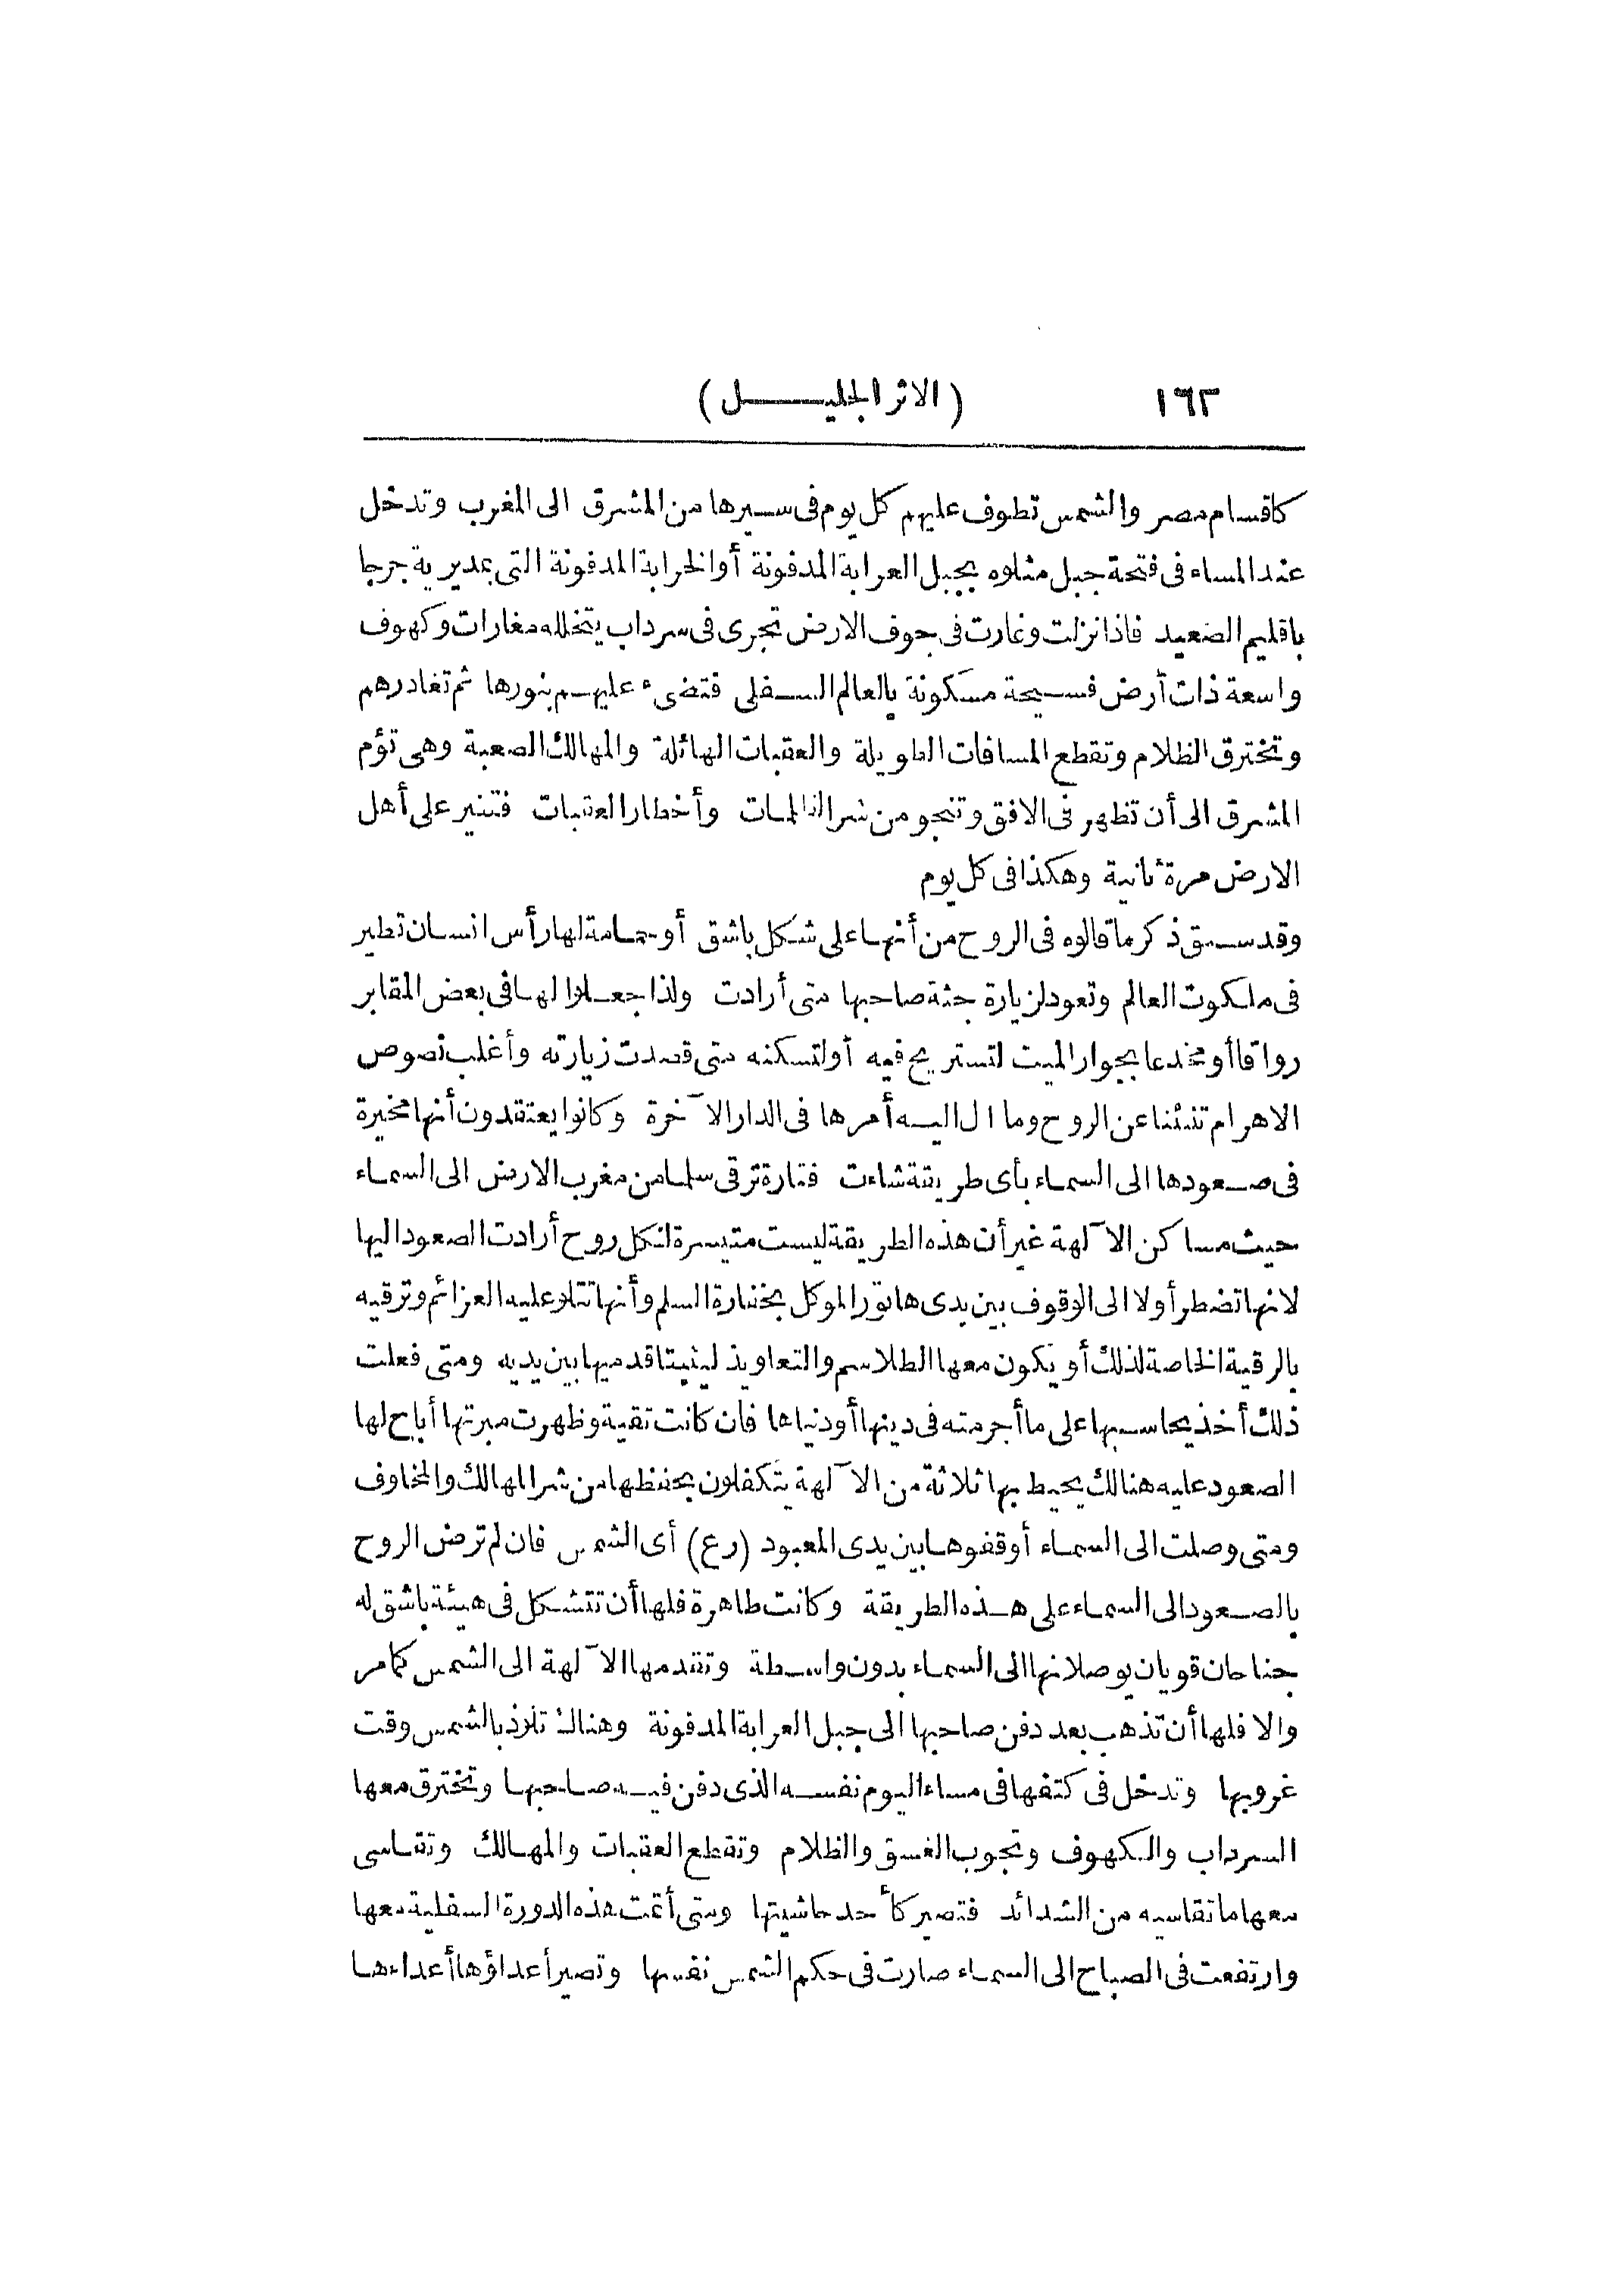 ١٦٢ (الاثر الجليل)
كاقسام مصر والشمس تطوف عليهم كل يوم فى سيرها من المشرق الى المغرب وتدخل
عند المساء فى فتحة جبل مثلوه بجبل العرابة المدفونة أو الخرابة المدفونة التى بمديرية جرجا
باقليم الصعيد فاذا نزلت وغارت فى جوف الارض تجرى فى سرداب يتخلله مغارات وكهوف
واسعة ذات أرض فسيحة مسكونة بالعالم السفلى فتضىء عليهم بنورها ثم تغادرهم
وتخترق الظلام وتقطع المسافات الطويلة والعقبات الهائلة والمهالك الصعبة وهى تؤم
المشرق الى أن تظهر فى الافق وتنجو من شر الظلمات وأخطار العقبات فتنير على أهل
الارض مرة ثانية وهكذا فى كل يوم
وقد سبق ذكر ما قالوه فى الروح من أنها على شكل باشق أو حمامة لها رأس انسان تطير
فى ملكوت العالم وتعود لزيارة جثة صاحبها متى أرادت ولذا جعلوا لها فى بعض المقابر
رواقا أو مخدعا بجوار الميت لتستريح فيه أو لتسكنه متى قصدت زيارته وأغلب نصوص
الاهرام تنبئنا عن الروح وما ال اليه أمرها فى الدار الآخرة وكانوا يعتقدون أنها مخيرة
فى صعودها الى السماء بأى طريقة شاءت فتارة ترقى سلما من مغرب الارض الى السماء
حيث مساكن الآلهة غير أن هذه الطريقة ليست متيسرة لكل روح أرادت الصعود اليها
لانها تضطر أولا الى الوقوف بين يدى هاتور الموكل بخفارة السلم وأنها تتلو عليه العزائم وترقيه
بالرقية الخاصة لذلك أو يكون معها الطلاسم والتعاويذ ليثبتا قدميها بين يديه ومتى فعلت
ذلك أخذ يحاسبها على ما أجرمته فى دينها أو دنياها فان كانت تقية وظهرت مبرتها أباح لها
الصعود عليه هنالك يحيط بها ثلاثة من الآلهة يتكفلون بحفظها من شر المهالك والمخاوف
ومتى وصلت الى السماء أوقفوها بين يدى المعبود (رع) أى الشمس فان لم ترض الروح
بالصعود الى السماء على هذه الطريقة وكانت طاهرة فلها أن تتشكل فى هيئة باشق له
جناحان قويان يوصلانها الى السماء بدون واسطة وتقدمها الآلهة الى الشمس كما مر
والا فلها أن تذهب بعد دفن صاحبها الى جبل العرابة المدفونة وهناك تلاذ بالشمس وقت
غروبها وتدخل فى كتفها فى مساء اليوم نفسه الذى دفن فيه صاحبها وتخترق معها
السرداب والكهوف وتجوب الغسق والظلام وتقطع العقبات والمهالك وتقاسى
معها ما تقاسيه من الشدائد فتصير كأحد حاشيتها ومتى أتمت هذه الدورة السفلية معها
وارتفعت فى الصباح الى السماء صارت فى حكم الشمس نفسها وتصير أعداؤها أعداءها